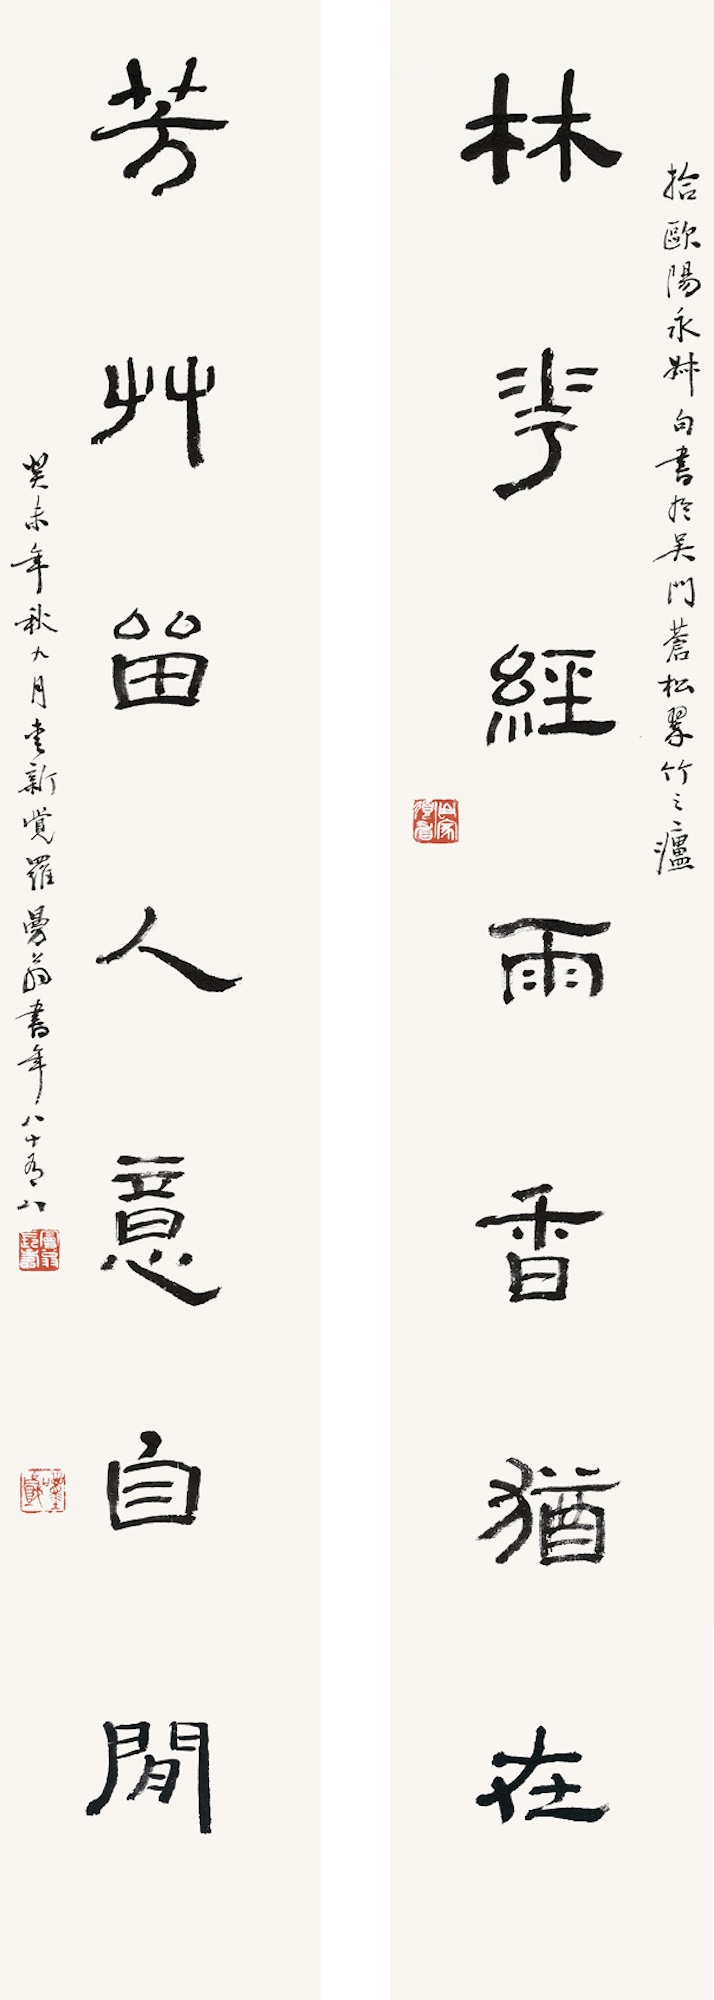 拾歐陽永叔句書於吴門蒼松翠竹之廬
林花經雨香猶在
芳艸留人意自閒
癸未年秋九月愛新覺羅曼翁書年八十有八